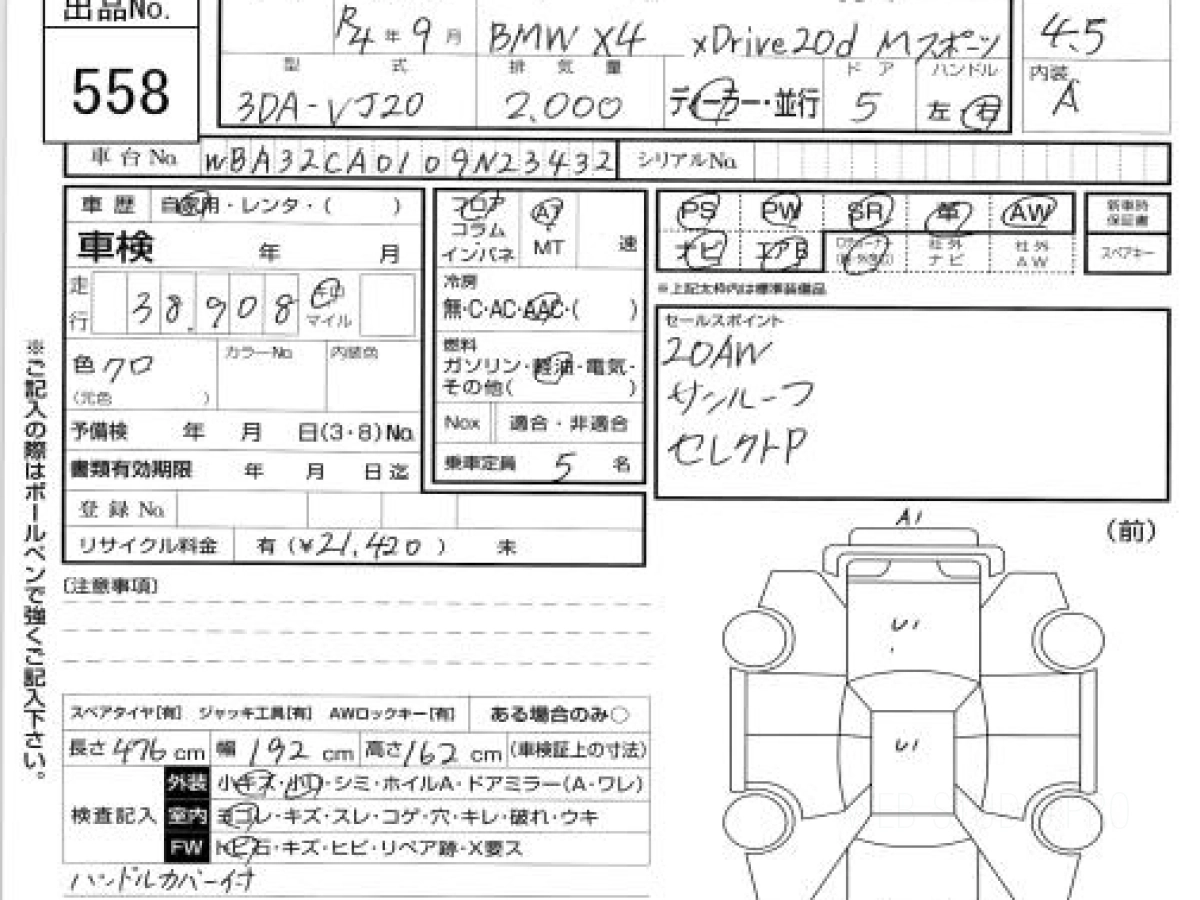 出品No.
R4年9月 BMW X4 xDrive20d Mスポーツ 4.5
558
型 式 排 気 量 ド ア ハンドル 内装
3DA-VJ20 2.000 ディーラー・並行 5 左 右 A
車台No. WBA32CA0109N23432 シリアルNo.
車歴 自家用・レンタ・( ) フロア AT PS PW SR 革 AW 新車時保証書
コラム
車検 年 月 インパネ MT 速 ナビ エアB 社外ナビ 社外AW スペアキー
※上記太枠内は標準装備品
走行 38.908 キロ マイル 冷房
無・C・AC・AAC・( ) セールスポイント
色 クロ カラーNo. 内装色 燃料 20AW
(元色 ) ガソリン・軽油・電気・ サンルーフ
その他( )
予備検 年 月 日(3・8)No. Nox 適合・非適合 セレクトP
書類有効期限 年 月 日迄 乗車定員 5 名
登録No.
リサイクル料金 有 (¥21,420 ) 未
A1 (前)
〔注意事項〕
U1
スペアタイヤ[有] ジャッキ工具[有] AWロックキー[有] ある場合のみ○
長さ476cm 幅192cm 高さ162cm (車検証上の寸法)
U1
検査記入 外装 小キズ・小凹・シミ・ホイルA・ドアミラー(A・ワレ)
室内 ヨゴレ・キズ・スレ・コゲ・穴・キレ・破れ・ウキ
FW トビ石・キズ・ヒビ・リペア跡・X要ス
ハンドルカバー付
※ご記入の際はボールペンで強くご記入下さい。